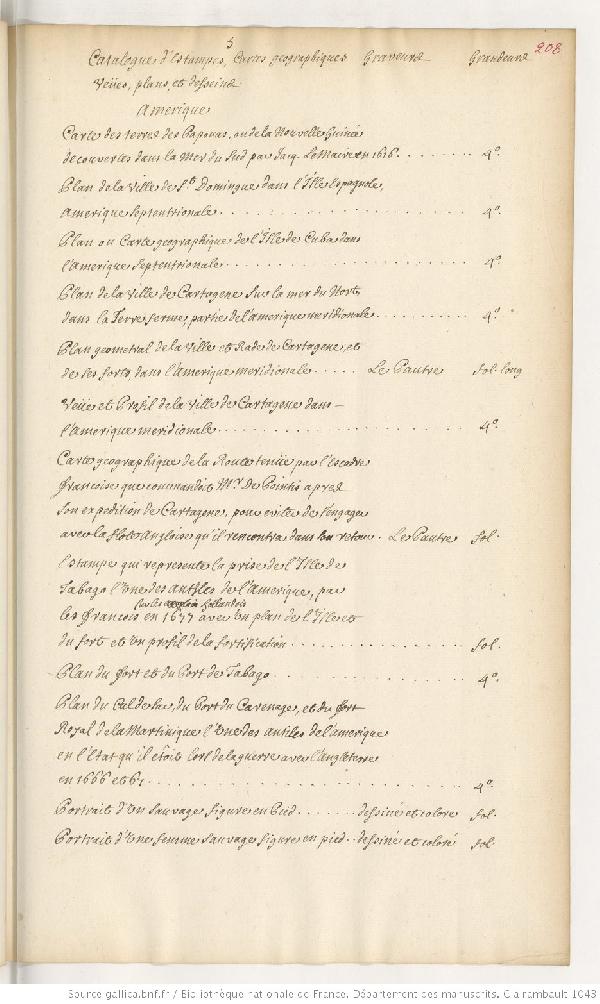 5
208
Catalogue d'Estampes, Cartes geographiques Graveurs Grandeurs
Veües, plans, et desseins
Amerique
Carte des terres des Papouas, ou de la Nouvelle Guinée
decouvertes dans la Mer du Sud par Jacq. Le Maire en 1616. . . . . . . . 4º.
Plan de la Ville de St. Domingue dans l'Isle Espagnole,
Amerique Septentrionale . . . . . . . . . . . . . . . . . . 4º.
Plan ou Carte geographique de l'Isle de Cuba dans
l'Amerique Septentrionale . . . . . . . . . . . . . . . . . . 4º.
Plan de la Ville de Cartagene sur la mer du Nort,
dans la Terre ferme, partie de l'amerique meridionale . . . . . . . . 4º.
Plan geometral de la Ville et Rade de Cartagene, et
de ses forts, dans l'Amerique meridionale . . . . . Le Pautre fol. long
Veüe et Profil de la Ville de Cartagene dans –
l'Amerique meridionale . . . . . . . . . . . . . . . . . . 4º.
Carte geographique de la Route tenüe par l'Escadre
françoise que commandoit Mr. De Pointis apres
son expedition de Cartagene, pour eviter de s'engager
avec la flote angloise qu'il rencontra dans son retour . Le Pautre fol.
l'Estampe qui represente la prise de l'Isle de
Tabago l'Une des antiles de l'Amerique, par
sur les hollandois
les francois en 1677 avec Un plan de l'Isle et
du fort et Un profil de la fortification . . . . . . . . . . . . . fol.
Plan du fort et du Port de Tabago . . . . . . . . . . . . . . . 4º.
Plan du Cul de Sac, du Port du Carenage, et du fort
Royal de la Martinique l'Une des antiles de l'amerique
en l'Etat qu'il étoit lors de la guerre avec l'angleterre
en 1666 et 67 . . . . . . . . . . . . . . . . . . . . . . 4º.
Portrait d'Un Sauvage figure en Pied . . . . . . dessiné et coloré fol.
Portrait d'Une femme Sauvage figure en pied . . dessiné et coloré fol.
Source gallica.bnf.fr / Bibliothèque nationale de France. Département des manuscrits. Clairambault 1043